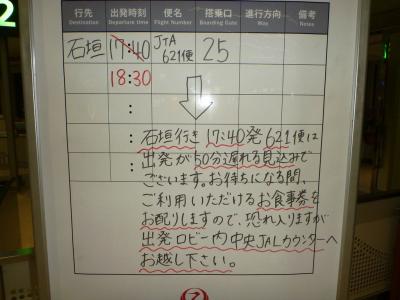 2
行先 出発時刻 便名 搭乗口 進行方向 備考
Destination Departure time Flight Number Boarding Gate Way Notes
石垣 17:40 JTA 621便 25
18:30
:
: 石垣行き 17:40発 621便は
: 出発が50分遅れる見込みで
ございます。お待ちになる間、
ご利用いただけるお食事券を
お配りしますので、恐れ入りますが
出発ロビー内中央JALカウンターへ
お越し下さい。